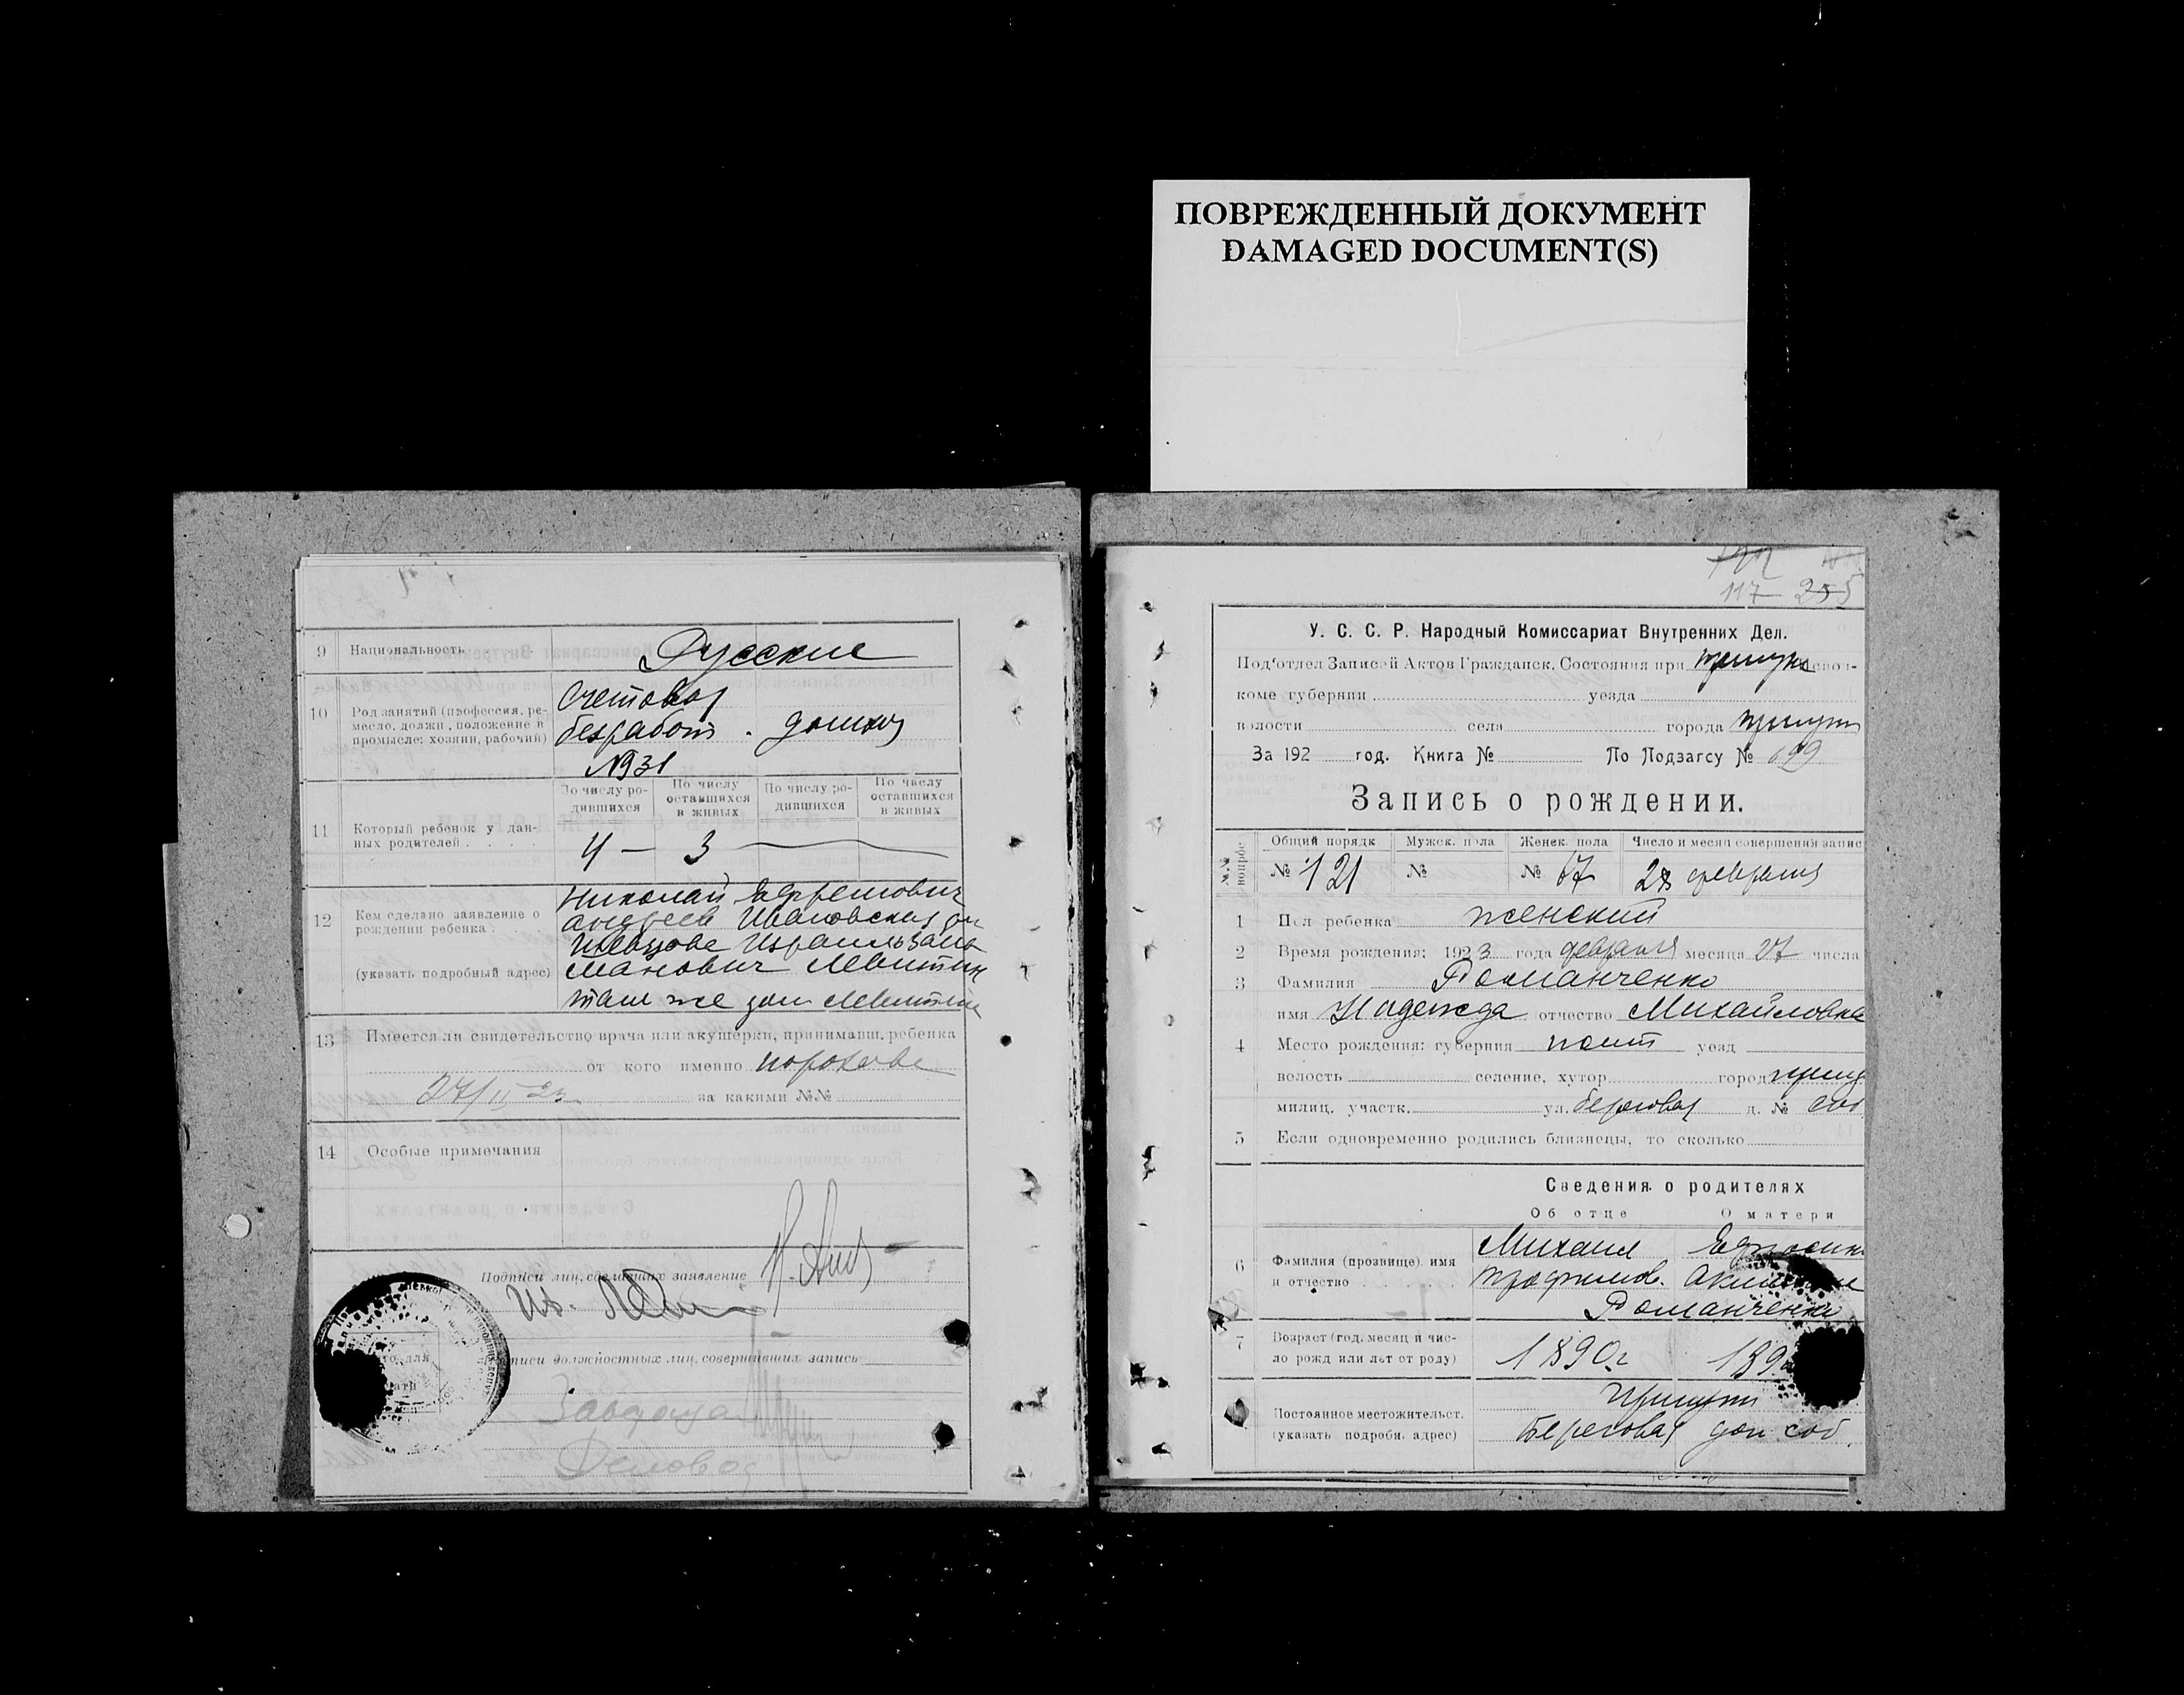 ПОВРЕЖДЕННЫЙ ДОКУМЕНТ
DAMAGED DOCUMENT(S)
9 Национальность Русские
10 Род занятий (профессия, ре-
месло, должн., положение в
промысле: хозяин, рабочий)
Счетовод
безработ. домхоз
№931
11 Который ребенок у дан-
ных родителей
По числу ро-
дившихся
По числу
оставшихся
в живых
По числу ро-
дившихся
По числу
оставшихся
в живых
4 — 3
12 Кем сделано заявление о
рождении ребенка
(указать подробный адрес)
Николай Ефремович
Андреев Ивановская
Израиль
Манович Левитин
там же дом Левитин
13 Имеется ли свидетельство врача или акушерки, принимавш. ребенка
от кого именно
27/II 23 за какими №№
14 Особые примечания
Подписи лиц, сделавших заявление
Подписи должностных лиц, совершивших запись
Завподза
Деловод
117 255
У. С. С. Р. Народный Комиссариат Внутренних Дел.
Под'отдел Записей Актов Гражданск. Состояния при испол-
коме губернии уезда
волости села города
За 192 год. Книга № По Подзагсу №
Запись о рождении.
№№ вопрос
Общий порядк. Мужск. пола Женск. пола Число и месяц совершения запис
№ 121 № № 67 28 февраля
1 Пол ребенка женский
2 Время рождения: 1923 года февраля месяца 27 числа
3 Фамилия Романченко
имя Надежда отчество Михайловна
4 Место рождения: губерния полт уезд
волость селение, хутор город
милиц. участк. ул. береговая д. № соб
5 Если одновременно родились близнецы, то сколько
Сведения о родителях
Об отце О матери
6 Фамилия (прозвище) имя
и отчество
Михаил
Трофимов.
Романченко
7 Возраст (год, месяц и чис-
ло рожд или лет от роду)
1890 г 189
Постоянное местожительст.
(указать подробн. адрес)
Прилуки
Береговая дом соб.